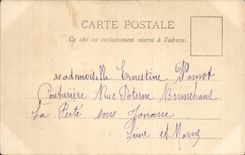 CARTE POSTALE
Ce côté est exclusivement réservé à l'adresse.
Mademoiselle Ernestine Parnot
Couturière Rue Poterne
La Ferté sous Jouarre
Seine et Marne